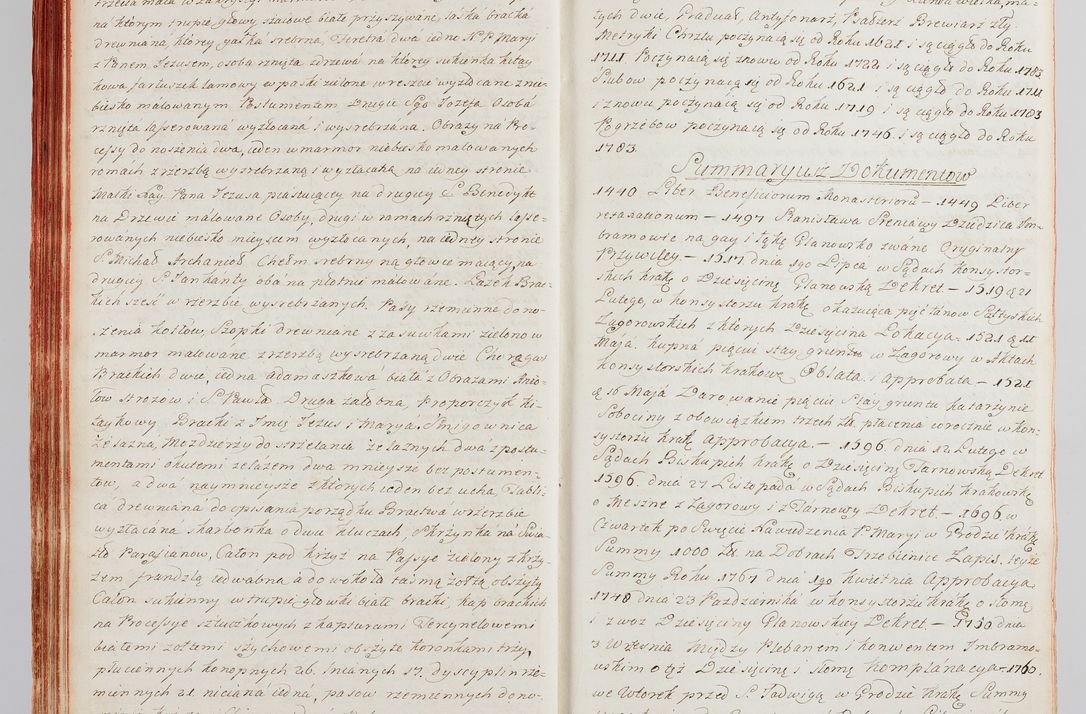 na którym trupie głowy, zaiowe białe przyszywane, laska bracka
drewniana, który gałka srebrna, Feretra dwa iedne N. P. Maryi
z Panem Jezusem, osoba rznięta z drzewa na ktorey sukienka kitay
kowa, fartuszek lamowy w paski zielone wreszcie wyzłocane z nie-
biesko malowanym Postumentem Drugie Sgo Jozefa Osoba
rznięta laserowana wyzłocana i wysrebrzana. Obrazy na Pro-
cessy do noszenia dwa, ieden w marmor niebiesko malowanych
ramach z rzezbą wysrebrzaną i wyzłacaną na iedney stronie
Matki Pana Jezusa piastuiący na drugiey S. Benedykt
na Drzewie malowane Osoby, drugi w ramach rzniętych lasse-
rowanych niebiesko mieyscem wyzłocanych, na iedney stronie
S. Michał Archanioł Chełm srebrny na głowie maiący, na
drugiey S. Jan Kanty oba na płótnie malowane. Lasek Brac-
kich sześć w rzezbie wysrebrzanych. Pasy rzemienne do no-
szenia Szopki drewniane z zasuwkami zielono w
marmor malowane z rzezbą wysrebrzaną dwie Chorągwi
Brackich dwie, iedna adamaszkowa biała z Obrazami Anio-
łow strozow i S. Pawła Druga załobna, Proporczyk ki-
taykowy Bracki z Imię Jezus i Marya. Smigownica
żelazna, Mozdzierzy do strzelania żelaznych dwa z postu-
mentami okutemi zelazem dwa mnieysze bez postumen-
tow, a dwa naymnieysze z ktorych ieden bez ucha, Tabli-
ca drewniana do opisania porządku Bractwa w rzezbie
wyzłacana skarbonka o dwu kluczach, Skrzynka na Swia-
tła Parafianow, Całon pod krzyż na Passye zielony z krzy-
żem frandzlą iedwabna a do wokoła taśmą zołtą obszyty
Całon sukienny w trupie głowki białe bracki, kap brackich
na Processye sztuczkowych z kapturami Tercynelowemi
białemi zołtemi szychowemi obszyte koronkami trzy,
płuciennych konopnych 26. lnianych 17. dyscyplin rze-
miennych 21 niciana iedna, pasow rzemiennych do no-
tych dwie, Graduał, Antyfonarz, Psałterz Brewiarz zły
Metryki Chrztu poczynaią się od Roku 1621 i są ciągło do Roku
1711 Poczynaią się znowu od Roku 1722 i są ciągło do Roku 1783
Slubow poczynaią się od Roku 1621 i są ciągło do Roku 1711
i znowu poczynaią się od Roku 1719 i są ciągło do Roku 1783
Pogrzebow poczynaią się od Roku 1746 i są ciągło do Roku
1783.
Summaryusz Dokumentow
1440 Liber Beneficiorum Monasteriorũ – 1449 Liber
retaxationum – 1497 Stanisława Dziedzica Im-
bramowie na gay i łąkę Glanowsko zwane Oryginalny
Przywiley – 1517 dnia 19o Lipca w Sądach konsystor-
skich krakę o Dziesięcinę Glanowską Dekret – 1519 d 21
Lutego, w konsystorzu krakę okazuiąca pięć łanow Sułtyskich
Zagorowskich z ktorych Dziesięcina Lokacya – 1521 d
Maja. kupna pięciu stay gruntu w Zagorowy w Aktach
konsystorskich krakowę Oblata i approbata – 1521
d 16 Maja Darowanie pięciu stay gruntu katarżynie
Sobociny z obowiązkiem trzech zła. płacenia corocznie w kon-
systorzu krakę Approbacya. – 1596. dnia 12 Lutego w
Sądach Biskupich krakę o Dziesięcinę Tarnowską Dekret
1596 dnia 27 Listopada w Sądach Biskupich krakowskę
o Meszne z Zagorowy i z Tarnowy Dekret. – 1696 w
Czwartek po Swięcie Nawiedzenia P. Maryi w Grodzie krakę
Summy 1000 zł na Dobrach Trzebienice Zapis. teyże
Summy Roku 1767 dnia 19o kwietnia Approbacya
1748 dnia 23 Pazdziernika w konsystorzu krakę o słomę
i zwoz Dziesięciny Glanowskiey Dekret. – 1750 dnia
3 Września Między Plebanem i konwentem Imbramo-
wskim o tęż Dziesięcinę i słomę komplanacya – 1760.
we Wtorek przed S. Jadwigą w Grodzie krakę Summy